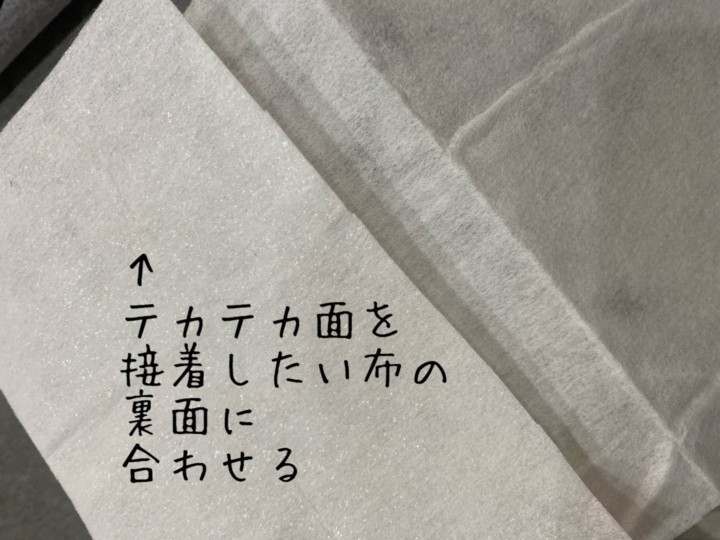 ↑
テカテカ面を
接着したい布の
裏面に
合わせる